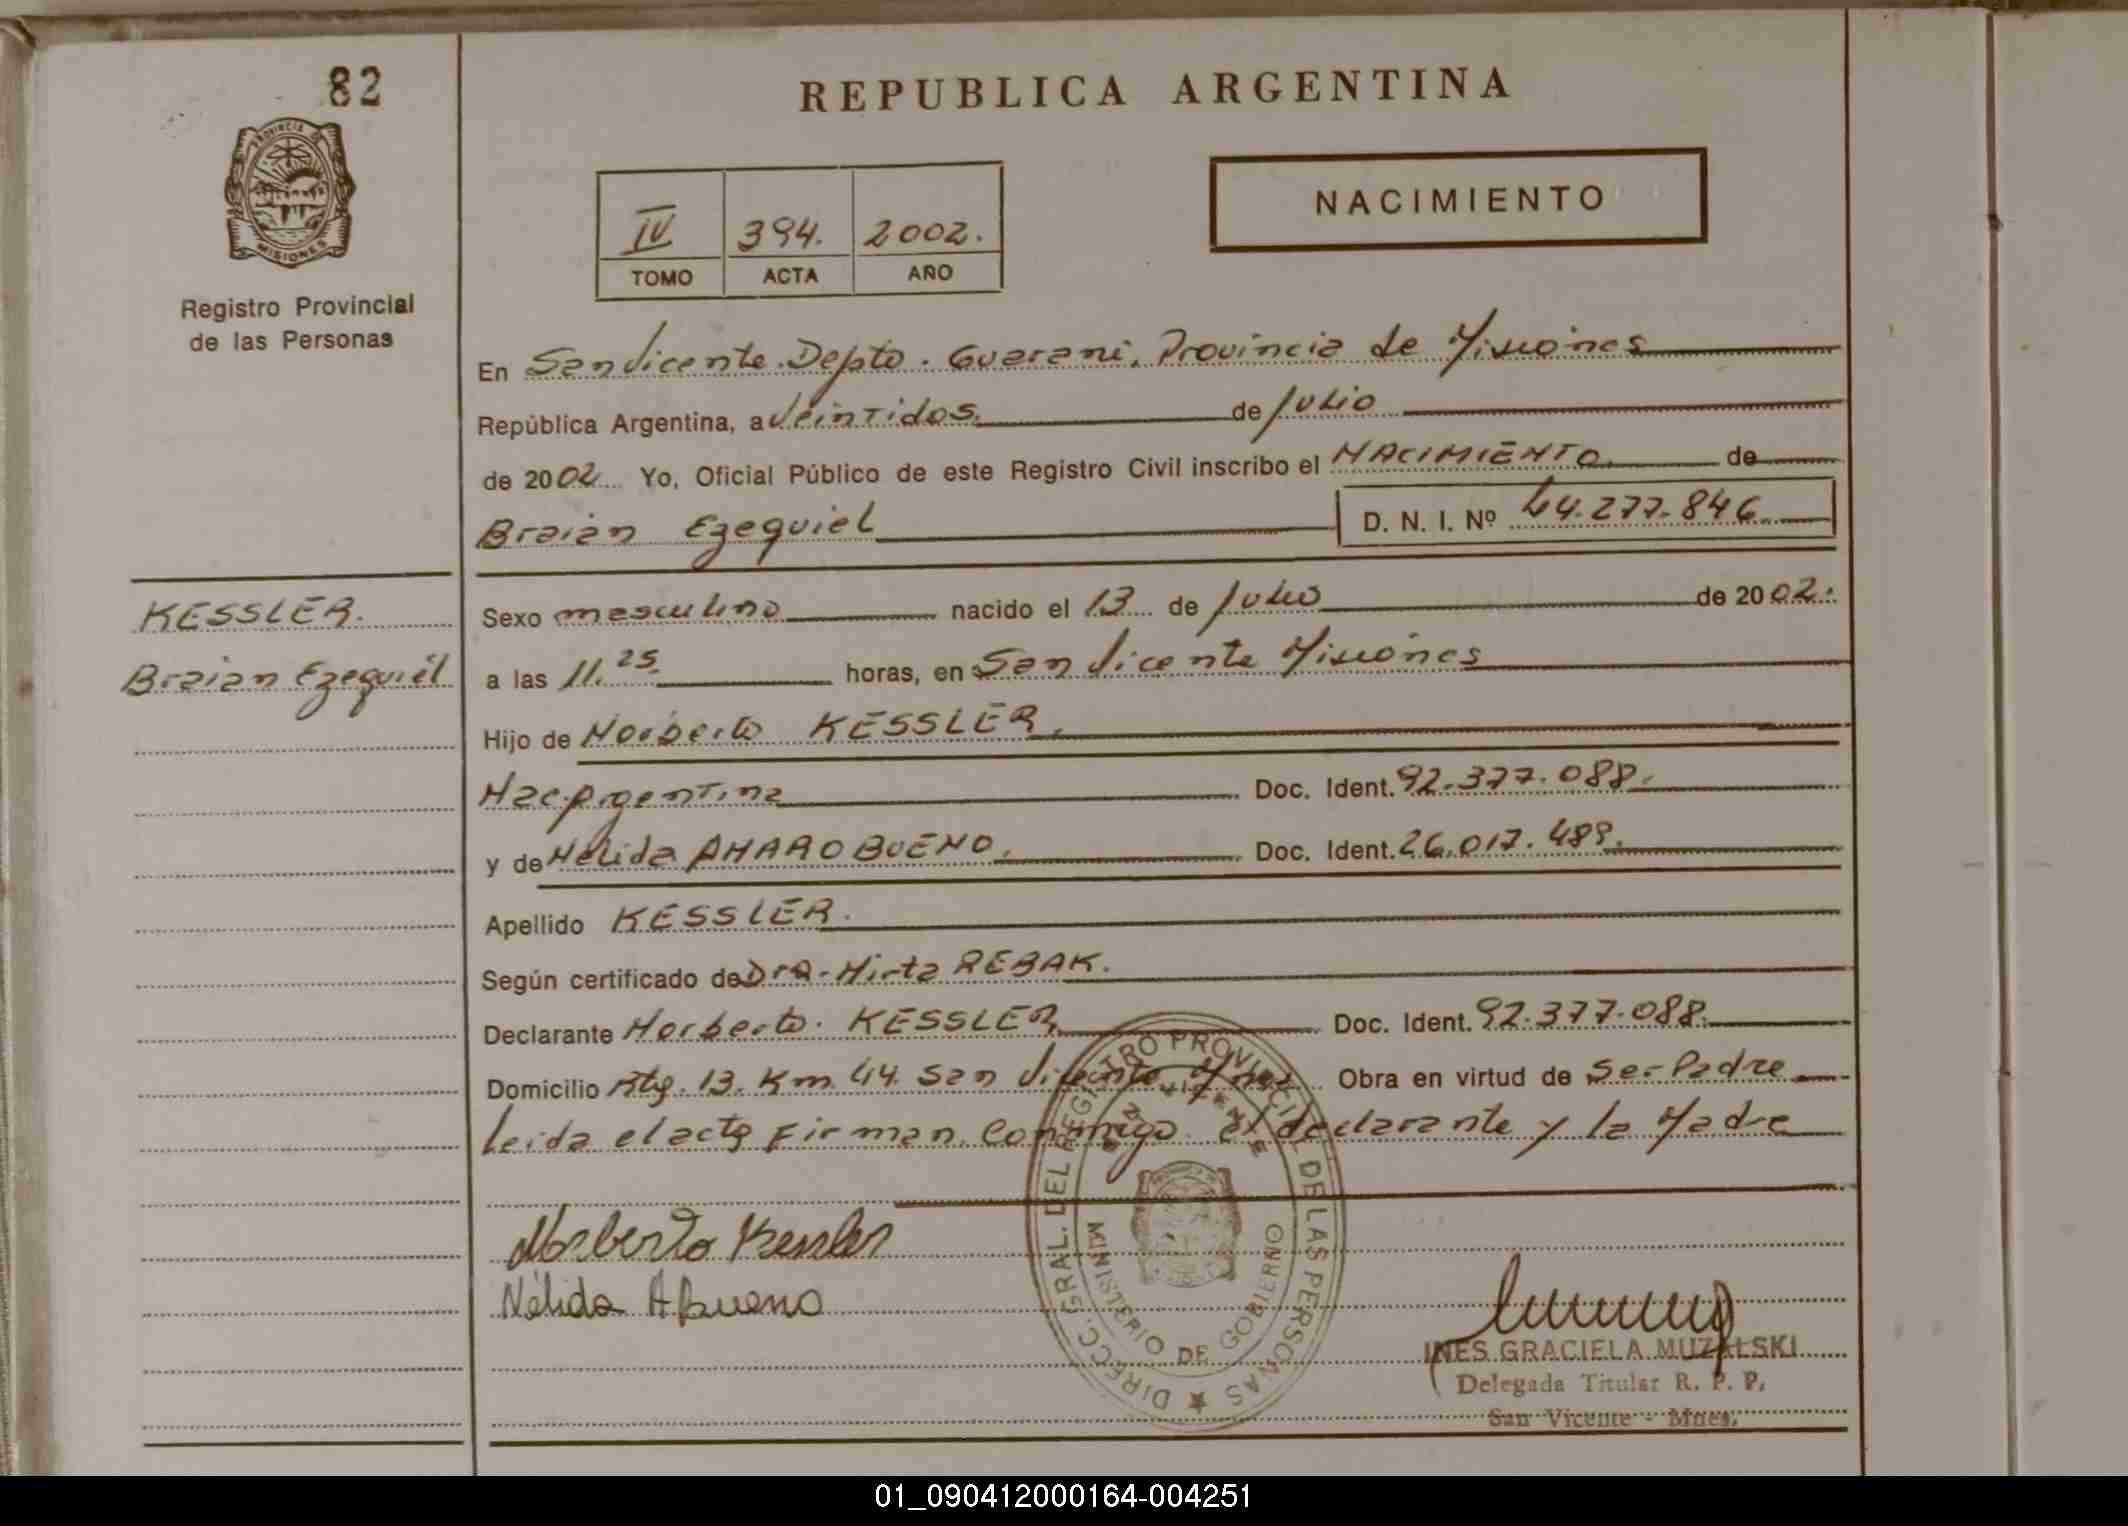 82
REPUBLICA ARGENTINA
PROVINCIA DE
MISIONES
Registro Provincial
de las Personas
IV 394. 2002.
TOMO ACTA AÑO
NACIMIENTO
En San Vicente. Depto. Guarani, Provincia de Misiones
República Argentina, a Veintidos. de Julio
de 2002 Yo, Oficial Público de este Registro Civil inscribo el NACIMIENTO de
Braian Ezequiel D. N. I. Nº 44.277.846
KESSLER.
Braian Ezequiel
Sexo masculino nacido el 13 de Julio de 2002.
a las 11.25 horas, en San Vicente Misiones
Hijo de Norberto KESSLER.
Nac. Argentina Doc. Ident. 92.377.088.
y de Nelida AMARO BUENO. Doc. Ident. 26.017.489.
Apellido KESSLER.
Según certificado de Dra. Mirta REBAK.
Declarante Norberto. KESSLER Doc. Ident. 92.377.088.
Domicilio Rta. 13. Km. 44. San Vicente Mnes. Obra en virtud de Ser Padre
Leida el acta Firman Conmigo el declarante y la Madre
Norberto Kessler
Nélida A Bueno
DIRECC. GRAL. DEL REGISTRO PROVINCIAL DE LAS PERSONAS
SAN VICENTE
MINISTERIO DE GOBIERNO
INES GRACIELA MUZALSKI
Delegada Titular R. P. P.
San Vicente - Mnes.
01_090412000164-004251